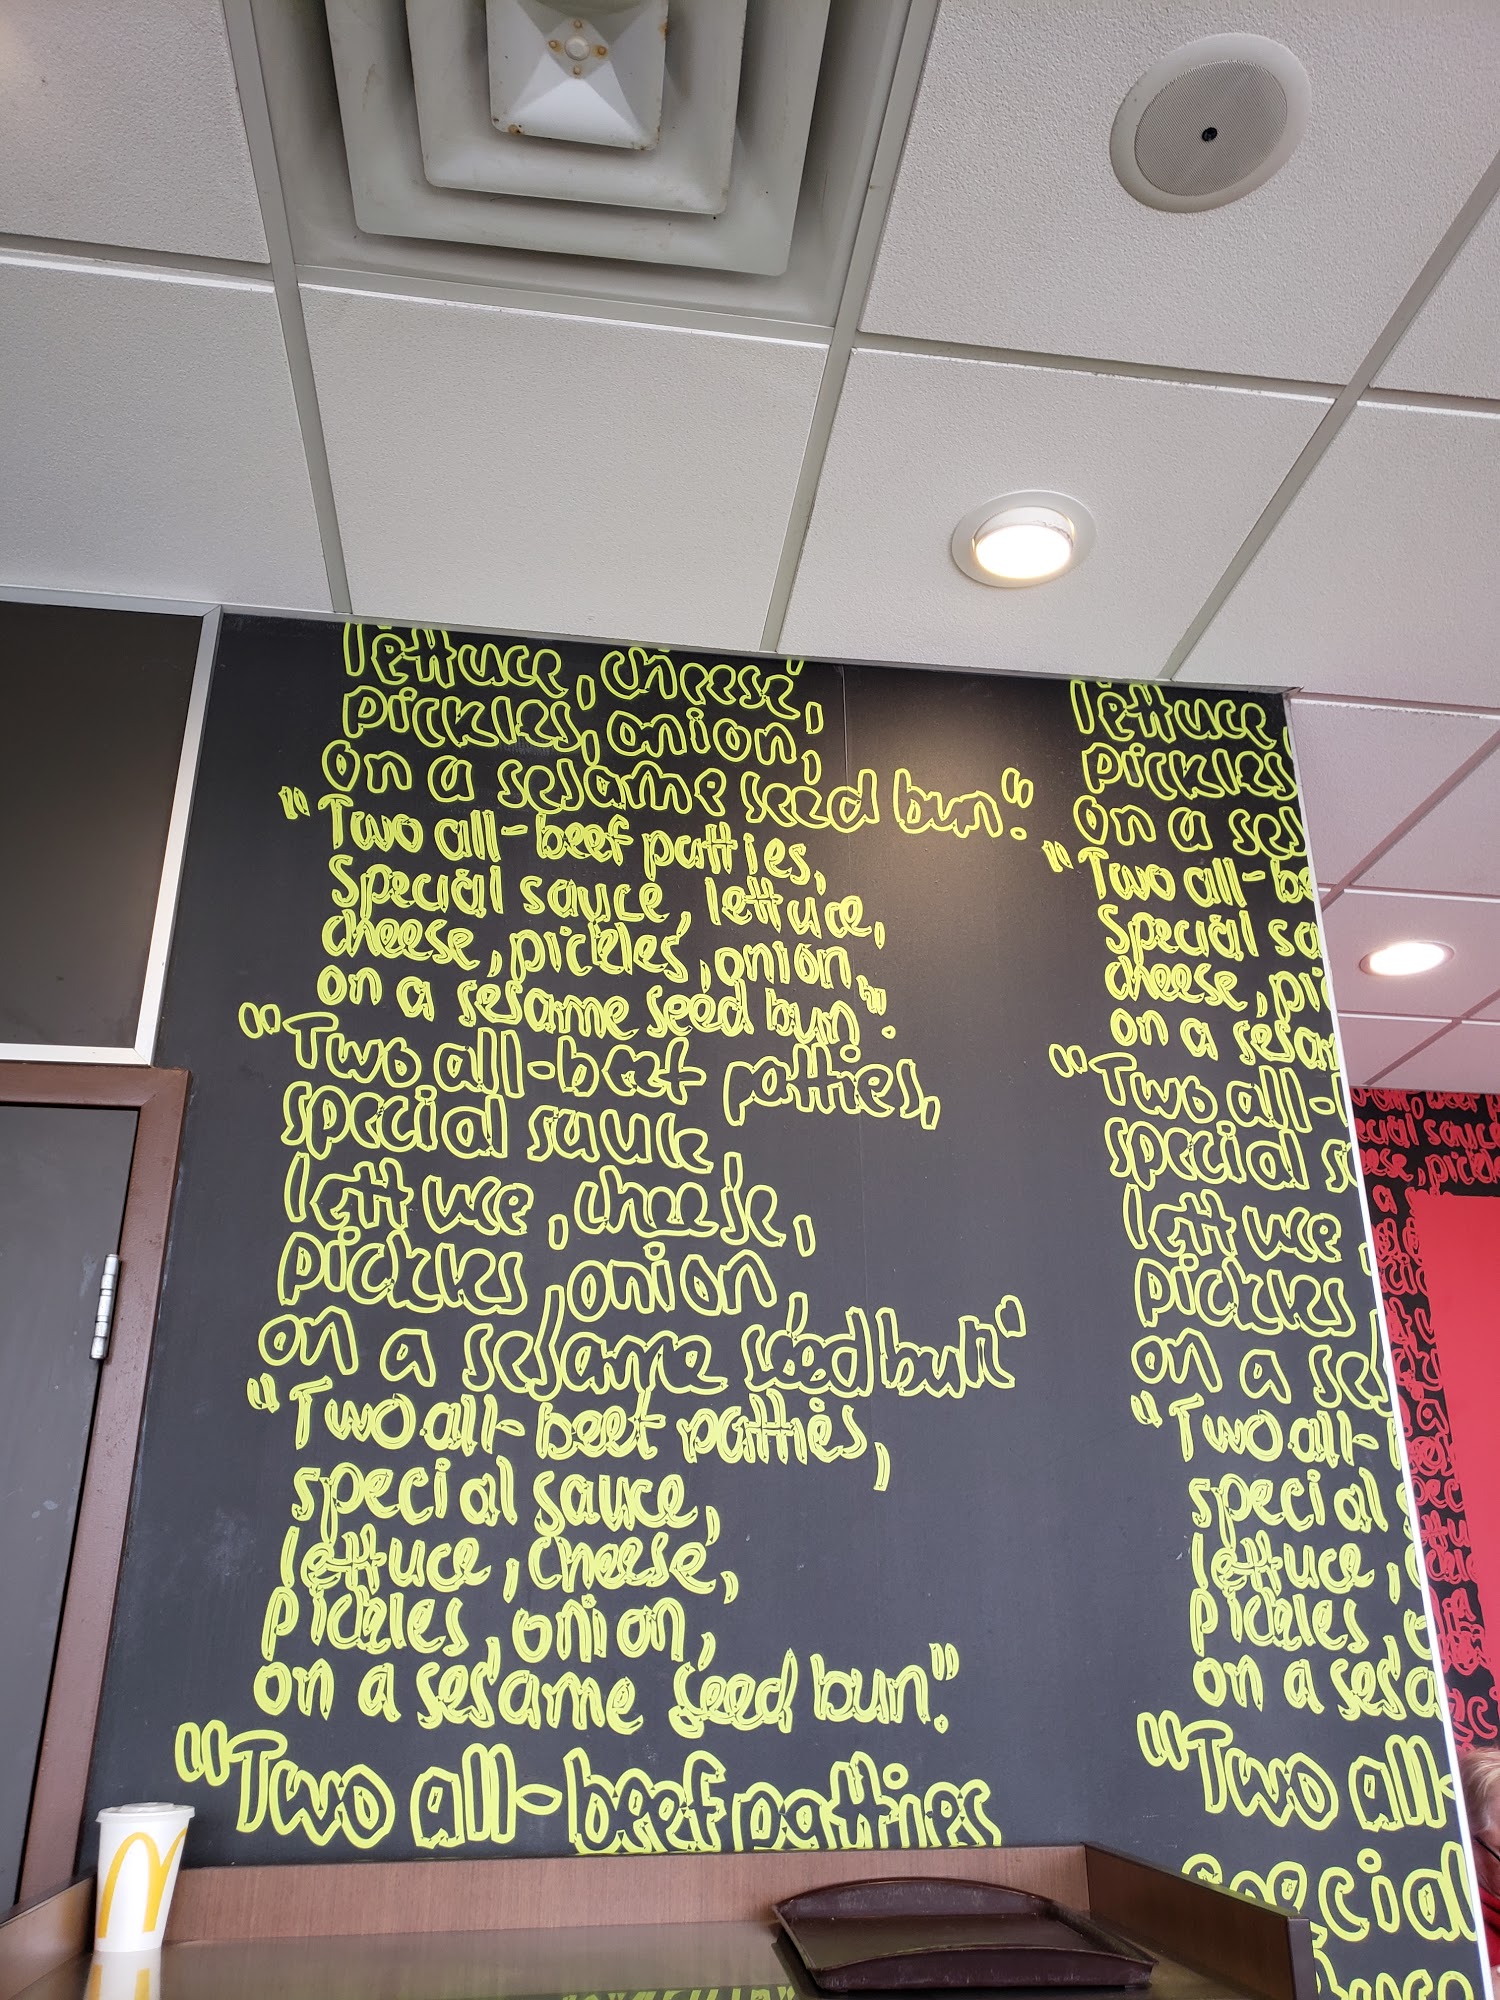 lettuce, cheese,
pickles, onion,
on a sesame seed bun".
"Two all-beef patties,
special sauce, lettuce,
cheese, pickles, onion,
on a sesame seed bun".
"Two all-beef patties,
special sauce,
lettuce, cheese,
pickles, onion,
on a sesame seed bun"
"Two all-beef patties,
special sauce,
lettuce, cheese,
pickles, onion,
on a sesame seed bun".
"Two all-beef patties
lettuce,
pickles
on a ses
"Two all-be
special sa
cheese, pi
on a sesam
"Two all-
special s
lettuce,
pickles
on a se
"Two all-
special
lettuce,
pickles,
on a sesa
"Two all-
special
beef p
special sauce
pickle